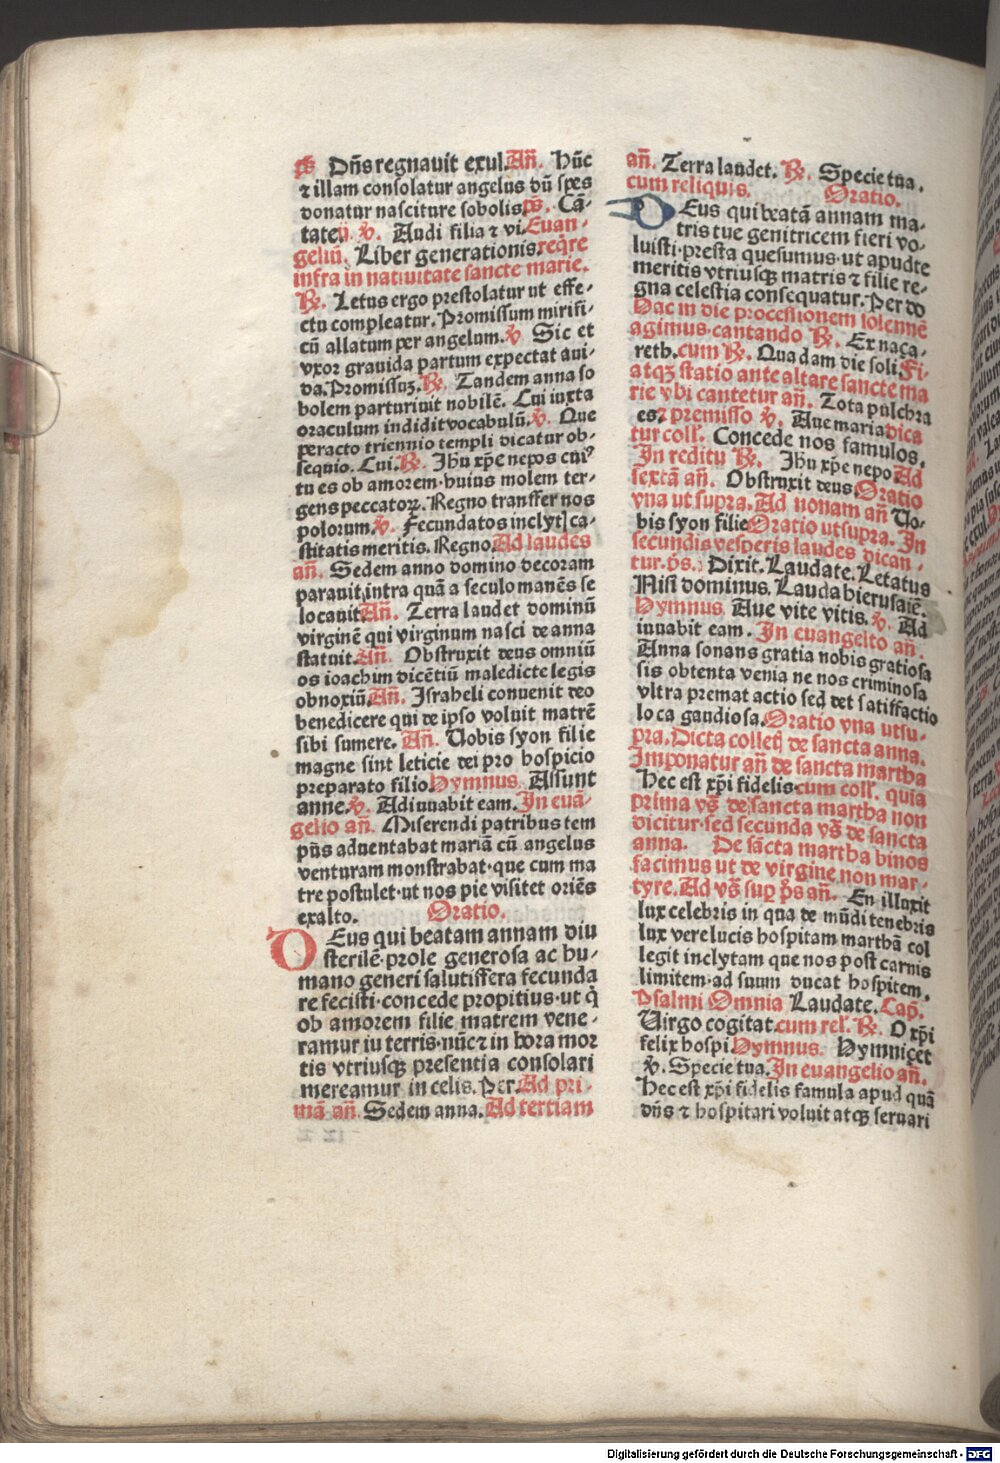 ps Dñs regnauit exul. Añ. Hũc
⁊ illam consolatur angelus dũ spes
donatur nasciture sobolis ps. Cã-
tate ij. ℣. Audi filia ⁊ vi. Euan-
geliũ. Liber generationis. reqͥre
infra in natiuitate sancte marie.
℟. Letus ergo prestolatur ut effe-
ctu compleatur. Promissum mirifi-
cũ allatum per angelum. ℣ Sic et
vxor grauida partum expectat aui-
da. Promissuȝ. ℟. Tandem anna so
bolem parturiuit nobilẽ. Cui iuxta
oraculum indidit vocabulũ. ℣. Que
peracto triennio templi dicatur ob-
sequio. Cui. ℟. Jhu xp̃e nepos cuiꝰ
tu es ob amorem·huius molem ter-
gens peccatoꝝ. Regno transfer nos
polorum. ℣. Fecundatos inclytꝭ ca-
stitatis meritis. Regno. Ad laudes
añ. Sedem anno domino decoram
parauit, intra quã a seculo manẽs se
locauit Añ. Terra laudet dominũ
virginẽ qui virginum nasci de anna
statuit. Añ. Obstruxit deus omniũ
os ioachim dicẽtiũ maledicte legis
obnoxiũ. Añ. Israheli conuenit deo
benedicere qui de ipso voluit matrẽ
sibi sumere. Añ. Uobis syon filie
magne sint leticie dei pro hospicio
preparato filio. Hymnus. Assunt
anne. ℣. Adiuuabit eam. In euã-
gelio añ. Miserendi patribus tem
pũs aduentabat mariã cũ angelus
venturam monstrabat·que cum ma
tre postulet·ut nos pie visitet oriẽs
exalto. Oratio.
Deus qui beatam annam diu
sterilẽ·prole generosa ac hu-
mano generi salutiffera fecunda
re fecisti·concede propitius·ut q̇
ob amorem filie matrem vene-
ramur iu terris·nũc ⁊ in hora mor
tis vtriusqȝ presentia consolari
mereamur in celis. Per. Ad pri-
mã añ. Sedem anna. Ad tertiam
añ. Terra laudet. ℟. Specie tua.
cum reliquis. Oratio.
Deus qui beatã annam ma-
tris tue genitricem fieri vo-
luisti·presta quesumus·ut apud te
meritis vtriusqȝ matris ⁊ filie re-
gna celestia consequatur. Per do
Hac in die processionem solennẽ
agimus·cantando ℟. Ex naça-
reth. cum ℟. Qua dam die soli Fi-
atqȝ statio ante altare sancte ma
rie vbi cantetur añ. Tota pulchra
es. ⁊ premisso ℣. Aue maria dica
tur coll'. Concede nos famulos.
In reditu ℟. Jhu xp̃e nepo Ad
sextã añ. Obstruxit deus. Oratio
vna ut supra. Ad nonam añ Uo-
bis syon filie Oratio utsupra. In
secundis vesperis laudes dican-
tur. p̃s. Dixit. Laudate. Letatus
Nisi dominus. Lauda hierusalẽ.
Hymnus. Aue vite vitis. ℣. Ad
iuuabit eam. In euangelio añ.
Anna sonans gratia nobis gratiosa
sis obtenta venia ne nos criminosa
vltra premat actio sed det satisfactio
loca gaudiosa. Oratio vna utsu-
pra. Dicta collet̃ de sancta anna.
Imponatur añ de sancta martha
Hec est xp̃i fidelis cum coll'. quia
prima vs̃ de sancta martha non
dicitur·sed secunda vs̃ de sancta
anna. De sãcta martha binos
facimus ut de virgine non mar-
tyre. Ad vs̃ sup̱ p̃s añ. En illuxit
lux celebris in qua de mũdi tenebris
lux vere lucis hospitam marthã col
legit inclytam que nos post carnis
limitem·ad suum ducat hospitem.
Psalmi Omnia Laudate. Cap̃.
Uirgo cogitat. cum rel'. ℟. O xp̃i
felix hospi Hymnus. Hymnicet
℣. Specie tua. In euangelio añ.
Hec est xp̃i fidelis famula apud quã
dñs ⁊ hospitari voluit atqȝ seruari
Digitalisierung gefördert durch die Deutsche Forschungsgemeinschaft - DFG